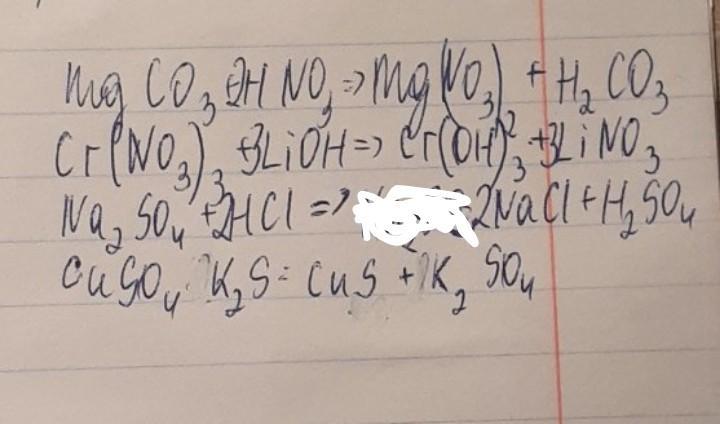 Mg CO₃ + 2H NO₃ => Mg(NO₃)₂ + H₂ CO₃
Cr(NO₃)₃ + 3LiOH => Cr(OH)₃ + 3LiNO₃
Na₂ SO₄ + 2HCl => 2NaCl + H₂SO₄
CuSO₄ K₂S = CuS + K₂ SO₄